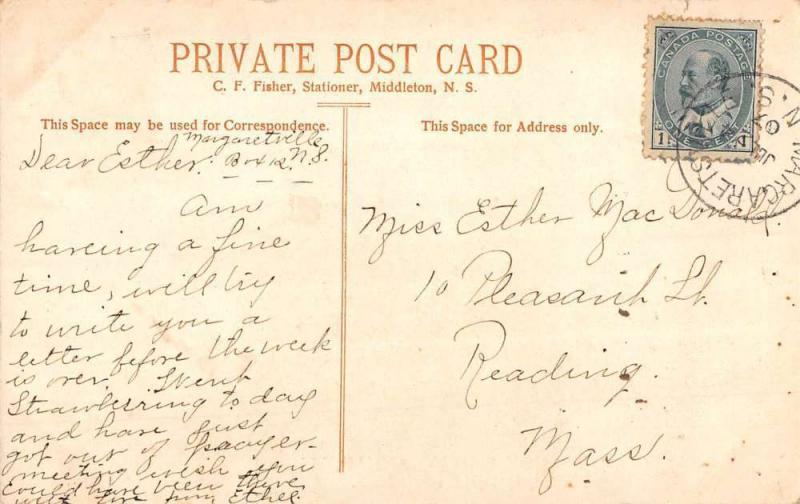 PRIVATE POST CARD
C. F. Fisher, Stationer, Middleton, N. S.
This Space may be used for Correspondence.
This Space for Address only.
CANADA POSTAGE
1
ONE CENT
MARGARETS
Margaretville
Dear Esther. Box 12 N.S.
Am
having a fine
time, will try
to write you a
letter before the week
is over. Went
Strawberring to day
and have just
got out of prayer-
meeting wish you
could have been there
with from Ethel
Miss Esther Mac Donald,
10 Pleasant St.
Reading.
Mass.